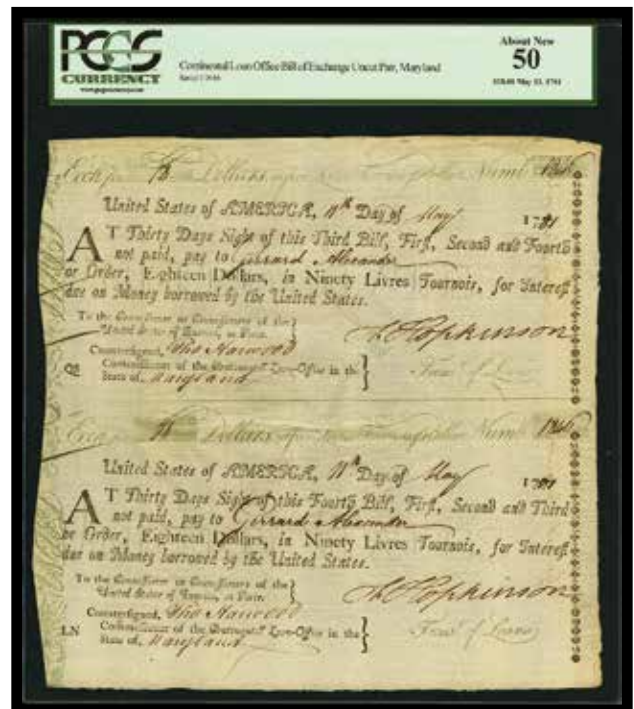 PCGS
CURRENCY
Continental Loan Office Bill of Exchange Uncut Pair, Maryland
About New
50
Exch for 18 Dollars Numb
United States of AMERICA, 11th Day of May 1781
AT Thirty Days Sight of this Third Bill, First, Second and Fourth
not paid, pay to Gerrard Alexander
or Order, Eighteen Dollars, in Ninety Livres Tournois, for Interest
due on Money borrowed by the United States.
To the Commissioner or Commissioners of the
United States of America, in Paris.
Countersigned, Tho Harwood
Commissioner of the Continental Loan-Office in the
State of, Maryland
Hopkinson
Treasr of Loans
18 Dollars Numb
United States of AMERICA, 11th Day of May 1781
AT Thirty Days Sight of this Fourth Bill, First, Second and Third
not paid, pay to Gerrard Alexander
or Order, Eighteen Dollars, in Ninety Livres Tournois, for Interest
due on Money borrowed by the United States.
To the Commissioner or Commissioners of the
United States of America, in Paris.
Countersigned, Tho Harwood
LN Commissioner of the Continental Loan-Office in the
State of, Maryland
Hopkinson
Treasr of Loans